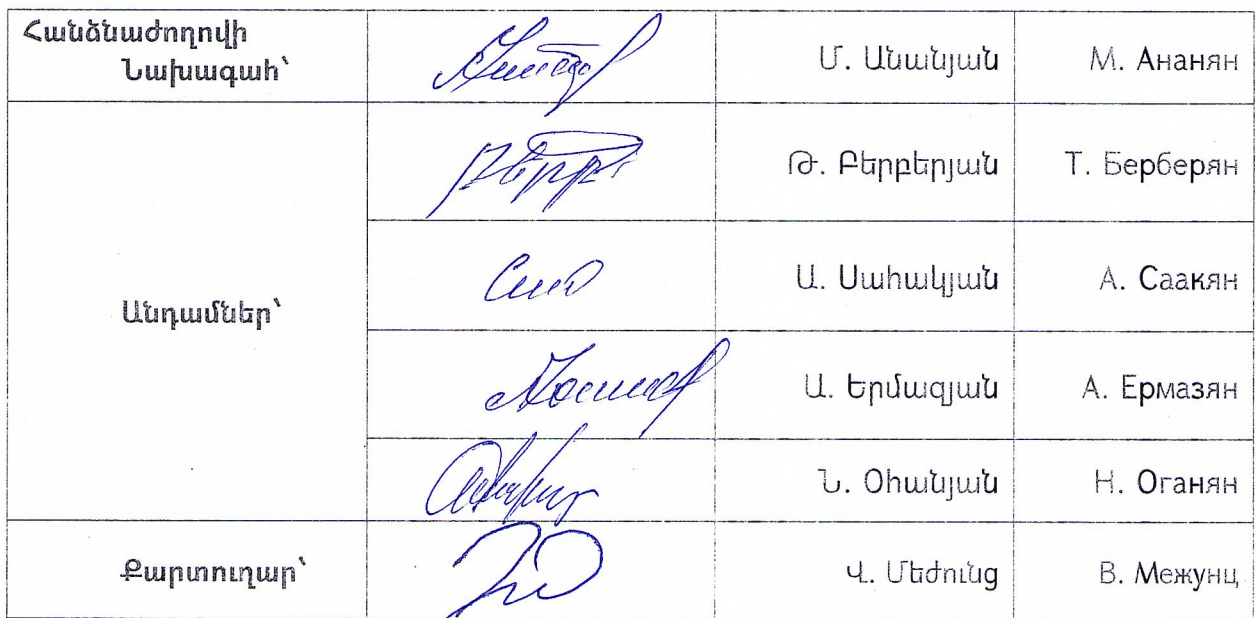 Հանձնաժողովի
Նախագահ՝
Մ. Անանյան М. Ананян
Թ. Բերբերյան Т. Берберян
Անդամներ՝
Ա. Սահակյան А. Саакян
Ա. Երմազյան А. Ермазян
Ն. Օհանյան Н. Оганян
Քարտուղար՝ Վ. Մեժունց В. Межунц